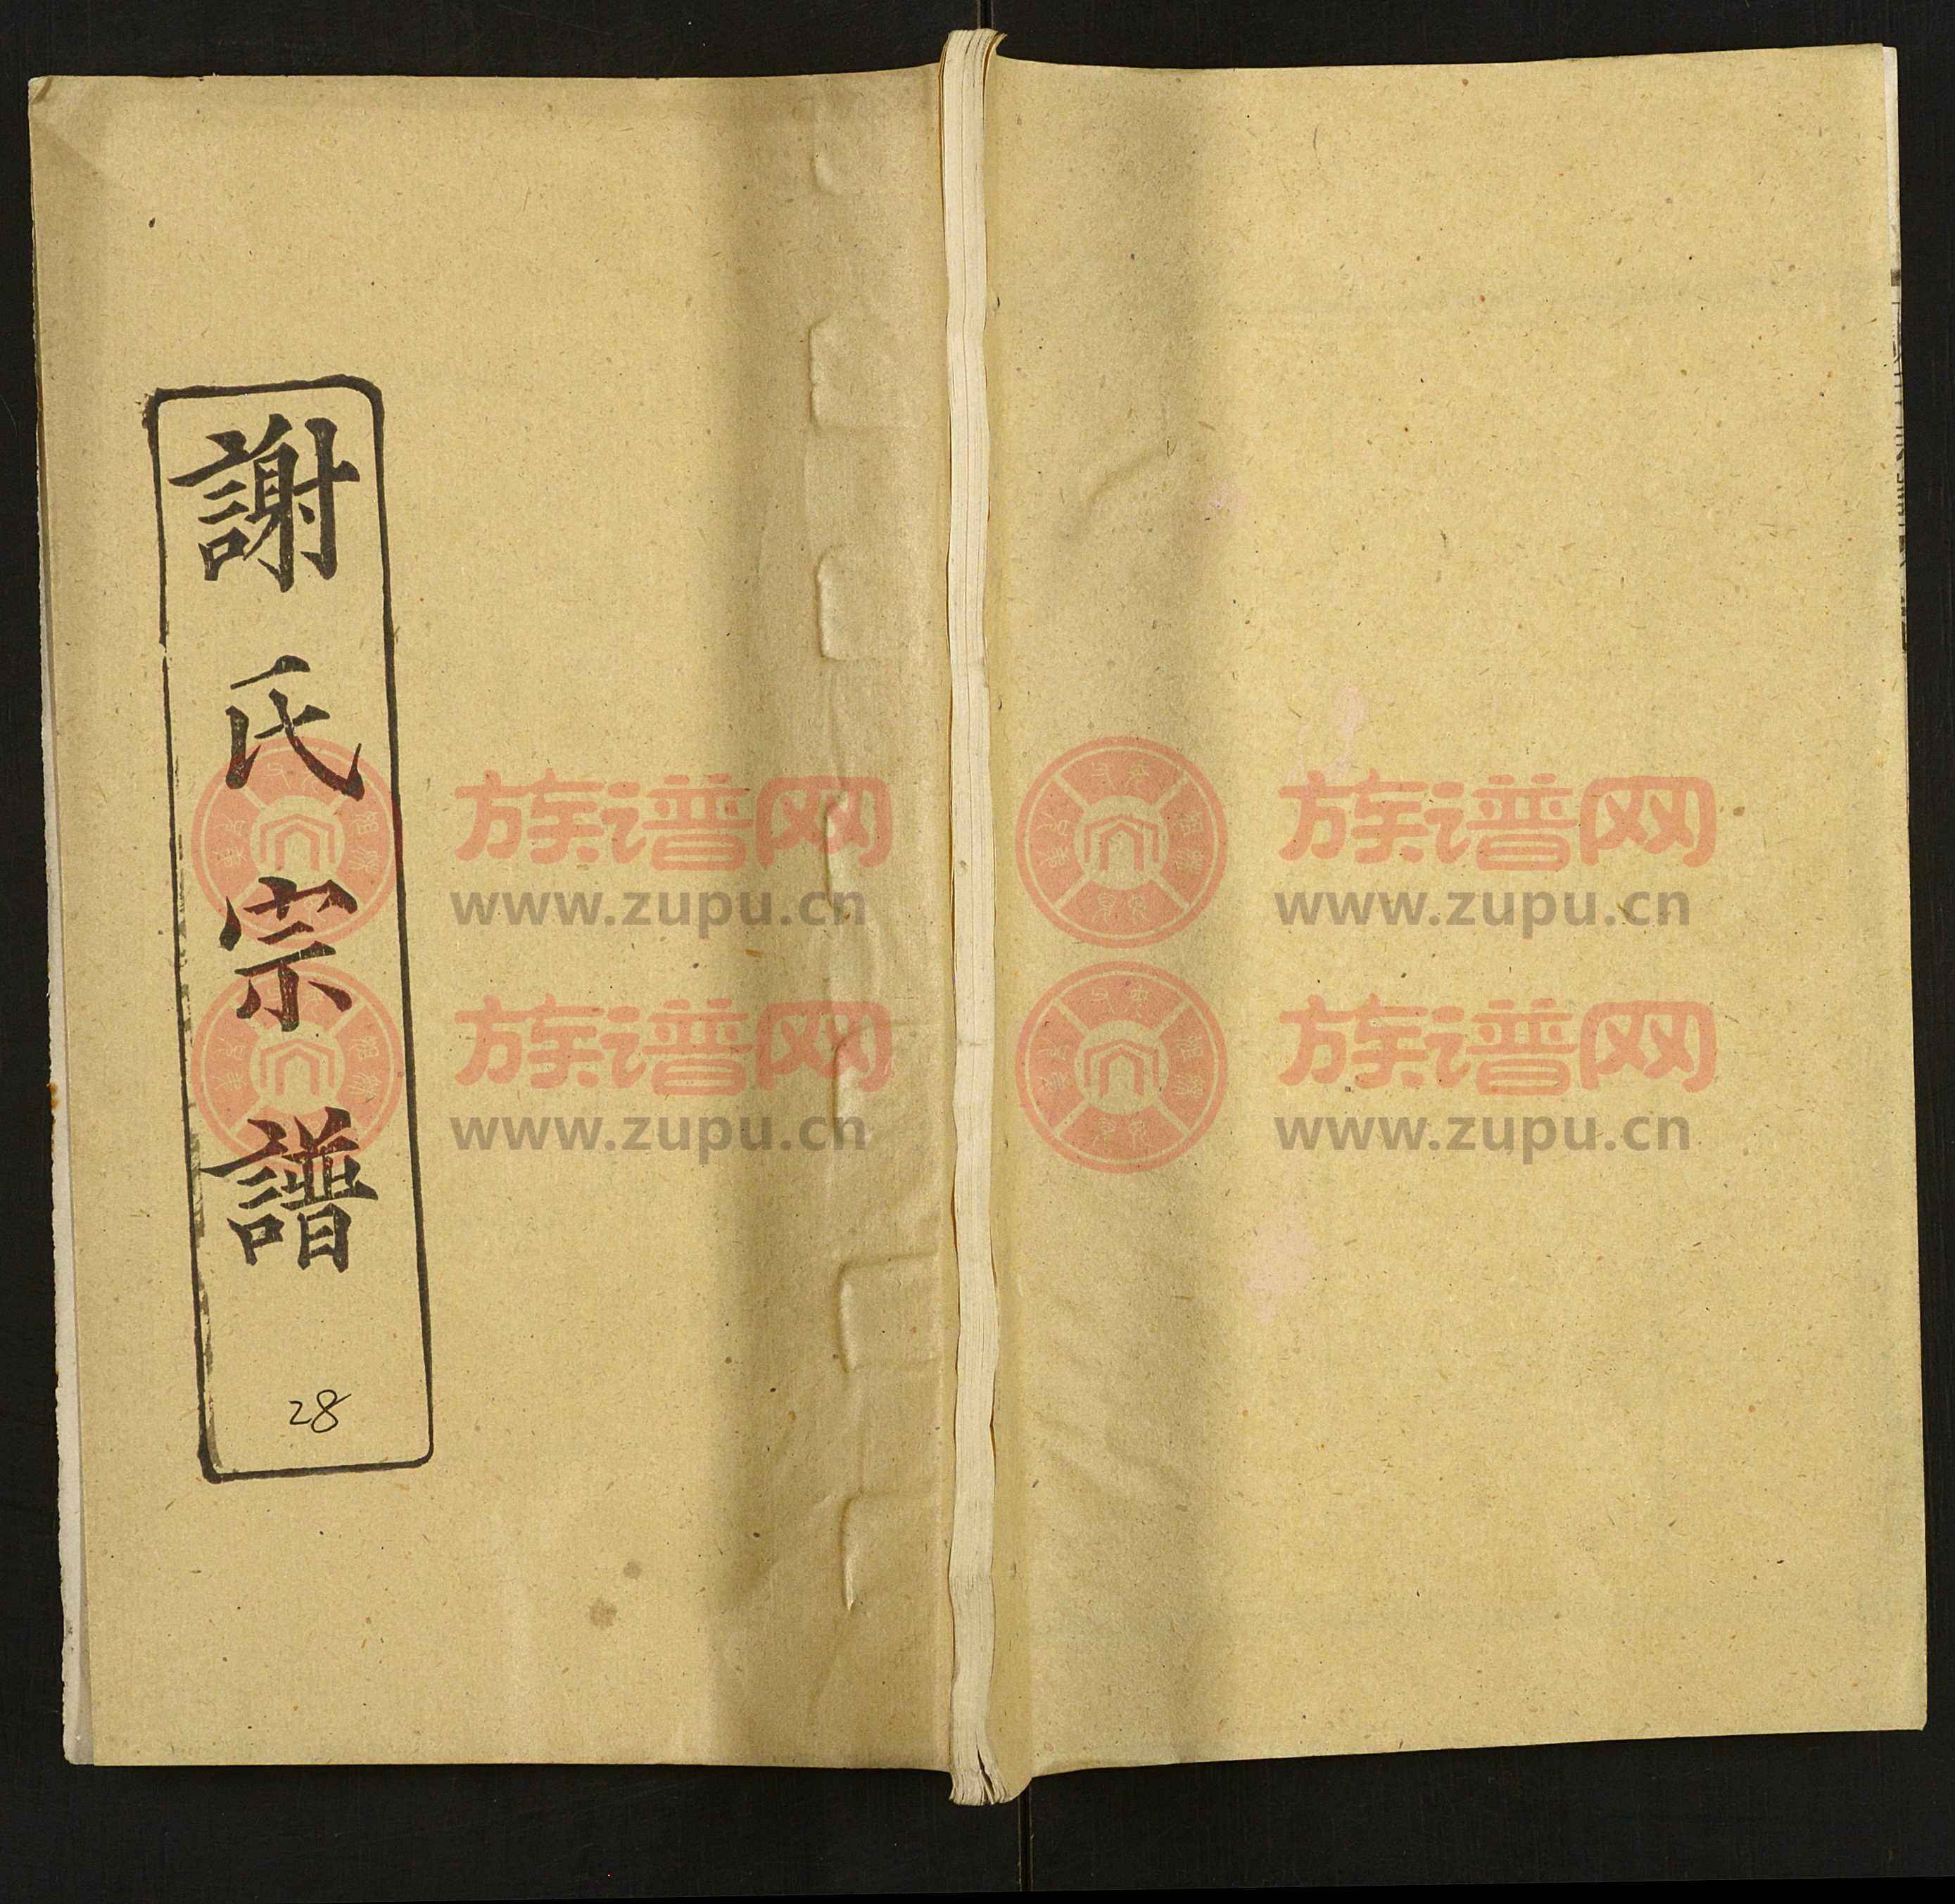 謝氏宗譜
28
族谱网
www.zupu.cn
族谱网
www.zupu.cn
族谱网
www.zupu.cn
族谱网
www.zupu.cn